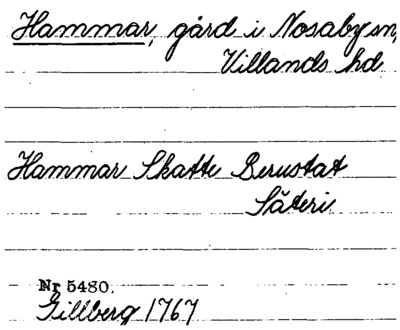 Hammar, gård i Nosaby sn,
Villands hd
Hammar Skatte Berustat
Säteri
Nr 5480.
Gillberg 1767